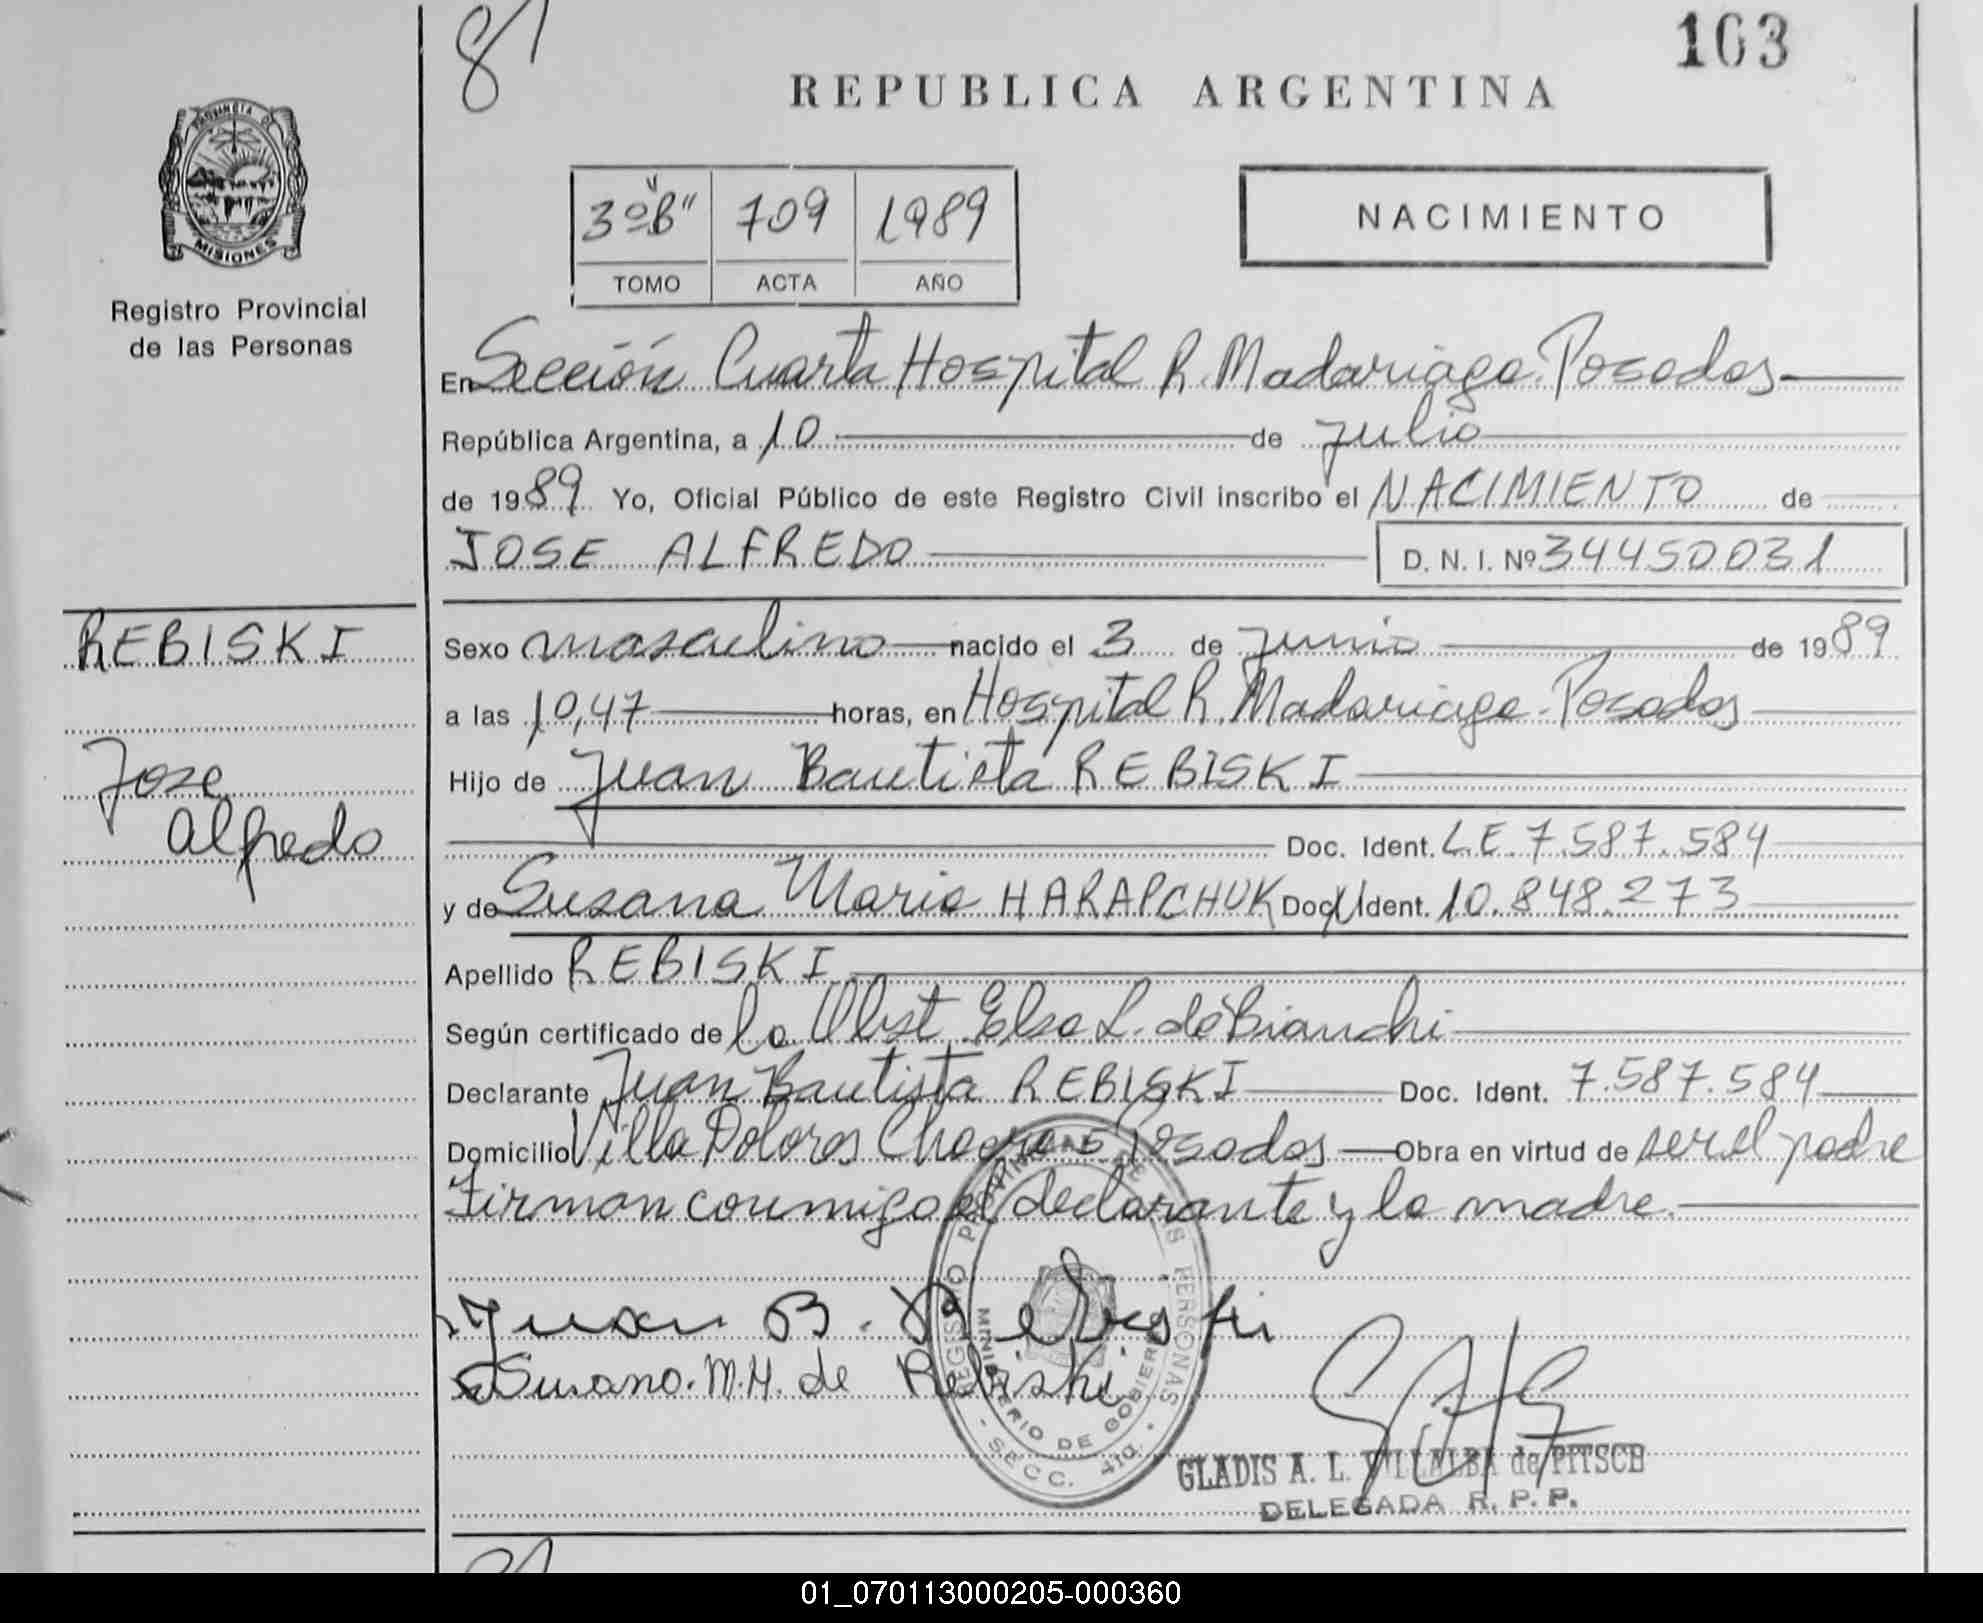 81
103
REPUBLICA ARGENTINA
PROVINCIA DE
MISIONES
Registro Provincial
de las Personas
3º "B" 709 1989
TOMO ACTA AÑO
NACIMIENTO
En Sección Cuarta Hospital R. Madariaga. Posadas
República Argentina, a 10 de julio
de 1989 Yo, Oficial Público de este Registro Civil inscribo el NACIMIENTO de
JOSE ALFREDO D. N. I. Nº 34450031
REBISKI
Jose
Alfredo
Sexo masculino nacido el 3 de junio de 1989
a las 10,47 horas, en Hospital R. Madariaga - Posadas
Hijo de Juan Bautista REBISKI
Doc. Ident. L.E. 7.587.584
y de Susana Maria HARAPCHUK Doc. Ident. 10.848.273
Apellido REBISKI
Según certificado de la Obst. Elsa L. de Bianchi
Declarante Juan Bautista REBISKI Doc. Ident. 7.587.584
Domicilio Villa Dolores Chacra 5 Posadas Obra en virtud de ser el padre
Firman conmigo el declarante y la madre.
Juan B. Rebiski
Susana. M.H. de Rebiski
REGISTRO PROVINCIAL DE LAS PERSONAS
MINISTERIO DE GOBIERNO
SECC. 4ta.
GLADIS A. L. VILLALBA de PITSCH
DELEGADA R. P. P.
01_070113000205-000360